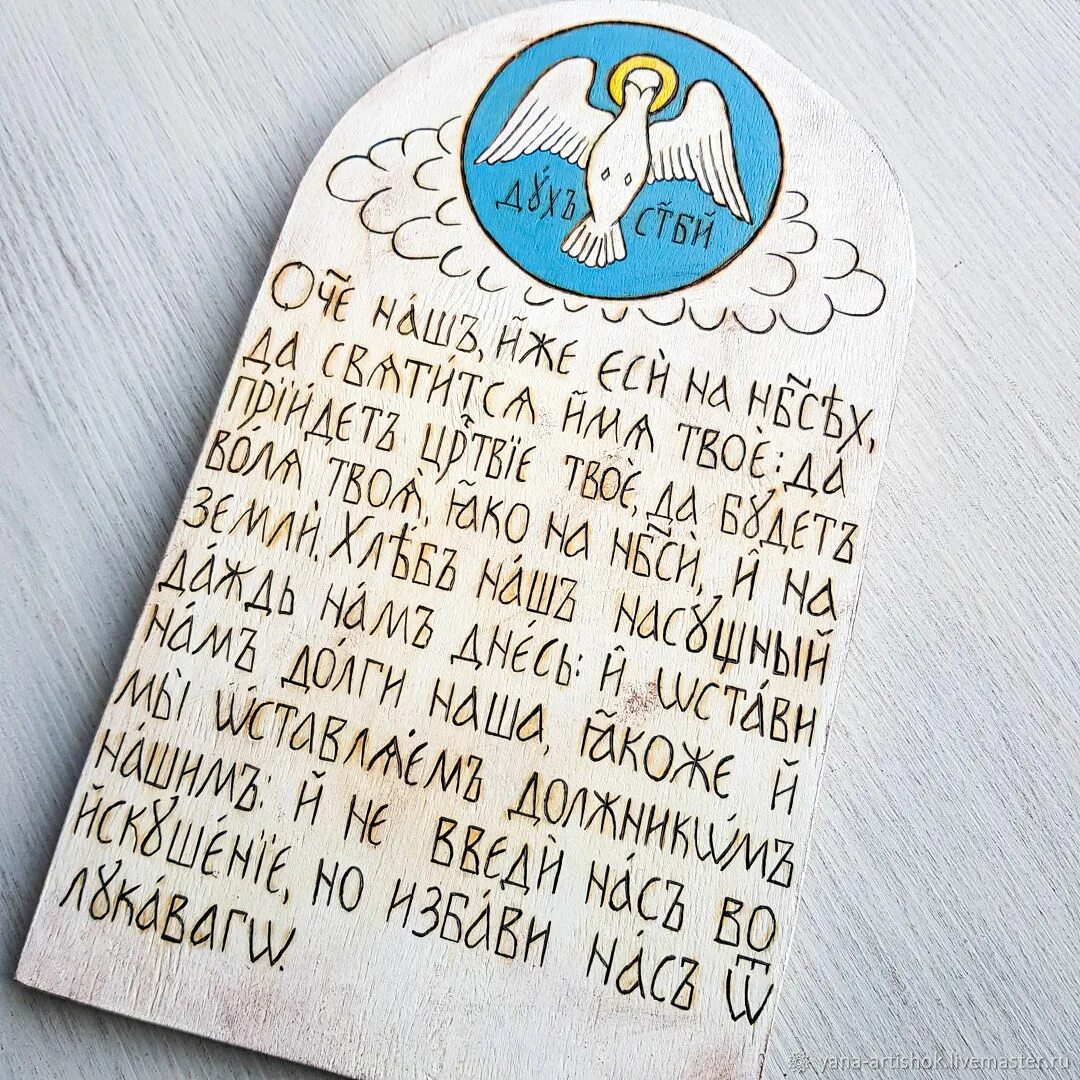 дꙋ́хъ ст҃ы́й
Ѻч҃е на́шъ, и҆́же є҆сѝ на нб҃сѣ́хъ,
да свѧти́тсѧ и҆́мѧ твоѐ: да
прїи́детъ црⷭ҇твїе твоѐ, да бꙋ́детъ
во́лѧ твоѧ̀, ꙗ҆́кѡ на нб҃сѝ, и҆ на
землѝ. Хлѣ́бъ на́шъ насꙋ́щный
да́ждь на́мъ дне́сь: и҆ ѡ҆ста́ви
на́мъ до́лги наша, ꙗ҆́коже и҆
мы̀ ѡ҆ставлѧ́емъ должникѡ́мъ
на́шимъ: и҆ не введѝ на́съ во
и҆скꙋше́нїе, но избáви на́съ ѿ
лꙋка́вагѡ.
yana-artishok.livemaster.ru